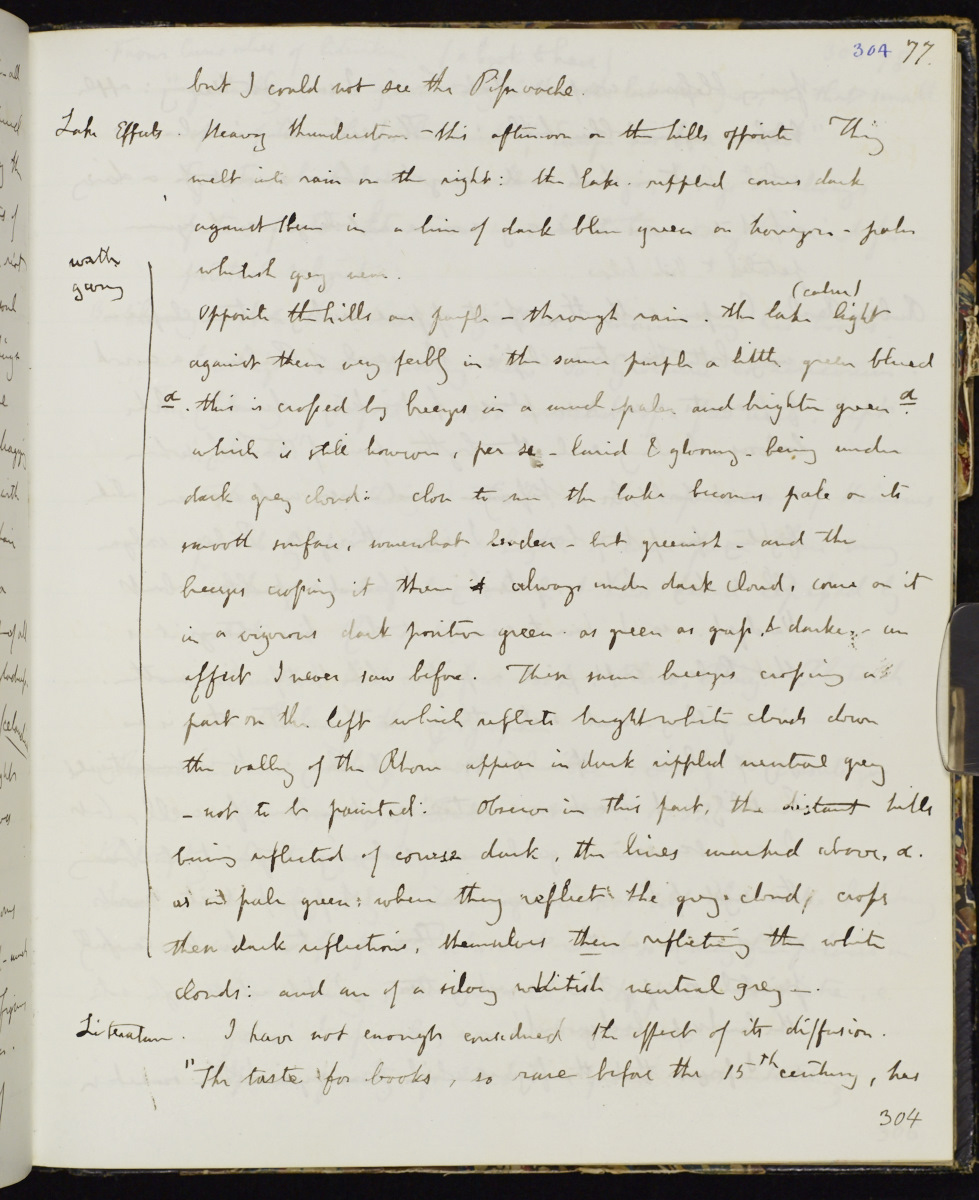 304 77.
but I could not see the Pissevache.
Lake Effects. Heavy thunderstorm - this afternoon on the hills opposite They
melt into rain on the right: the lake. rippled comes dark
against them in a line of dark blue green on horizon - paler
whitish grey near.
worth
giving
(calm)
Opposite the hills are purple - through rain. the lake light
against them very feebly in the same purple a little green blued
α. this is crossed by breezes in a much paler and brighter green α.
which is still however, per se - lurid & gloomy - being under
dark grey cloud: close to me the lake becomes pale on its
smooth surface, somewhat leaden - but greenish - and the
breezes crossing it there always under dark cloud, come on it
in a vigorous dark positive green. as green as grass, & darker, - an
effect I never saw before. These same breezes crossing a
part on the left which reflects bright white clouds down
the valley of the Rhone appear in dark rippled neutral grey
- not to be painted: Observe in this part, the distant hills
being reflected of course dark, the lines marked above, α.
as in pale green: when they reflect the grey cloud, cross
these dark reflections, themselves then reflecting the white
clouds: and are of a silvery whitish neutral grey -.
Literature. I have not enough considered the effect of its diffusion.
"The taste for books, so rare before the 15th century, has
304